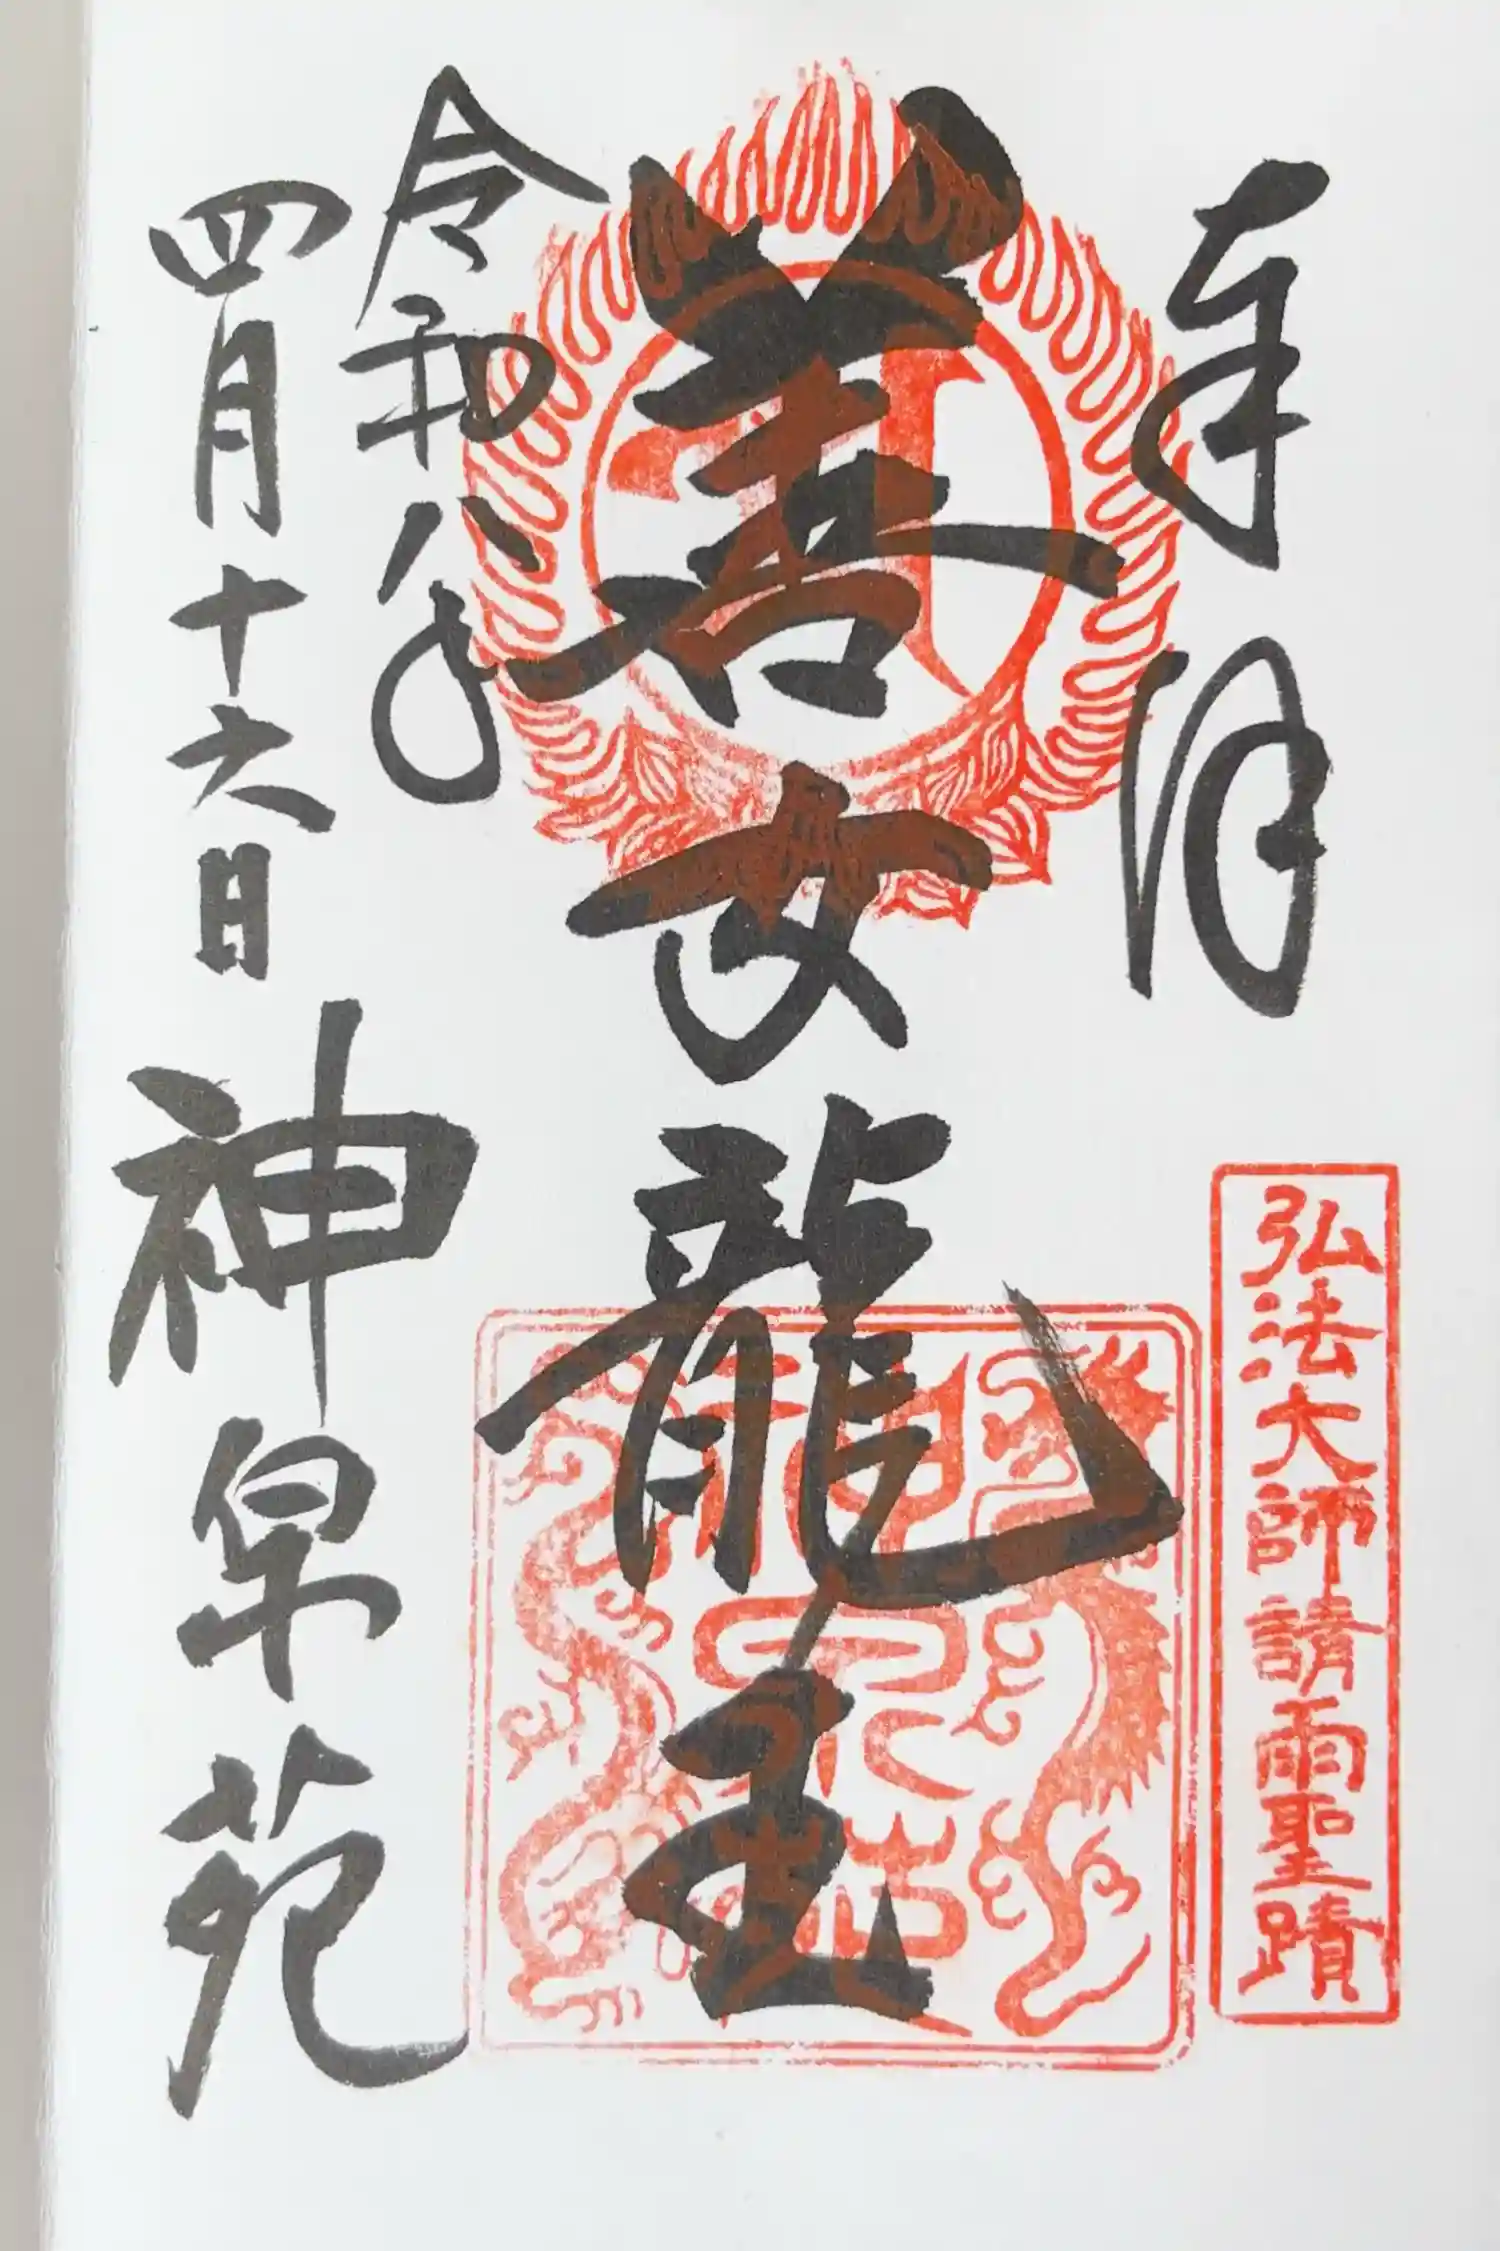 奉拝
弘法大師請雨聖蹟
善女龍王
神泉苑
令和八年
四月十六日
神泉苑